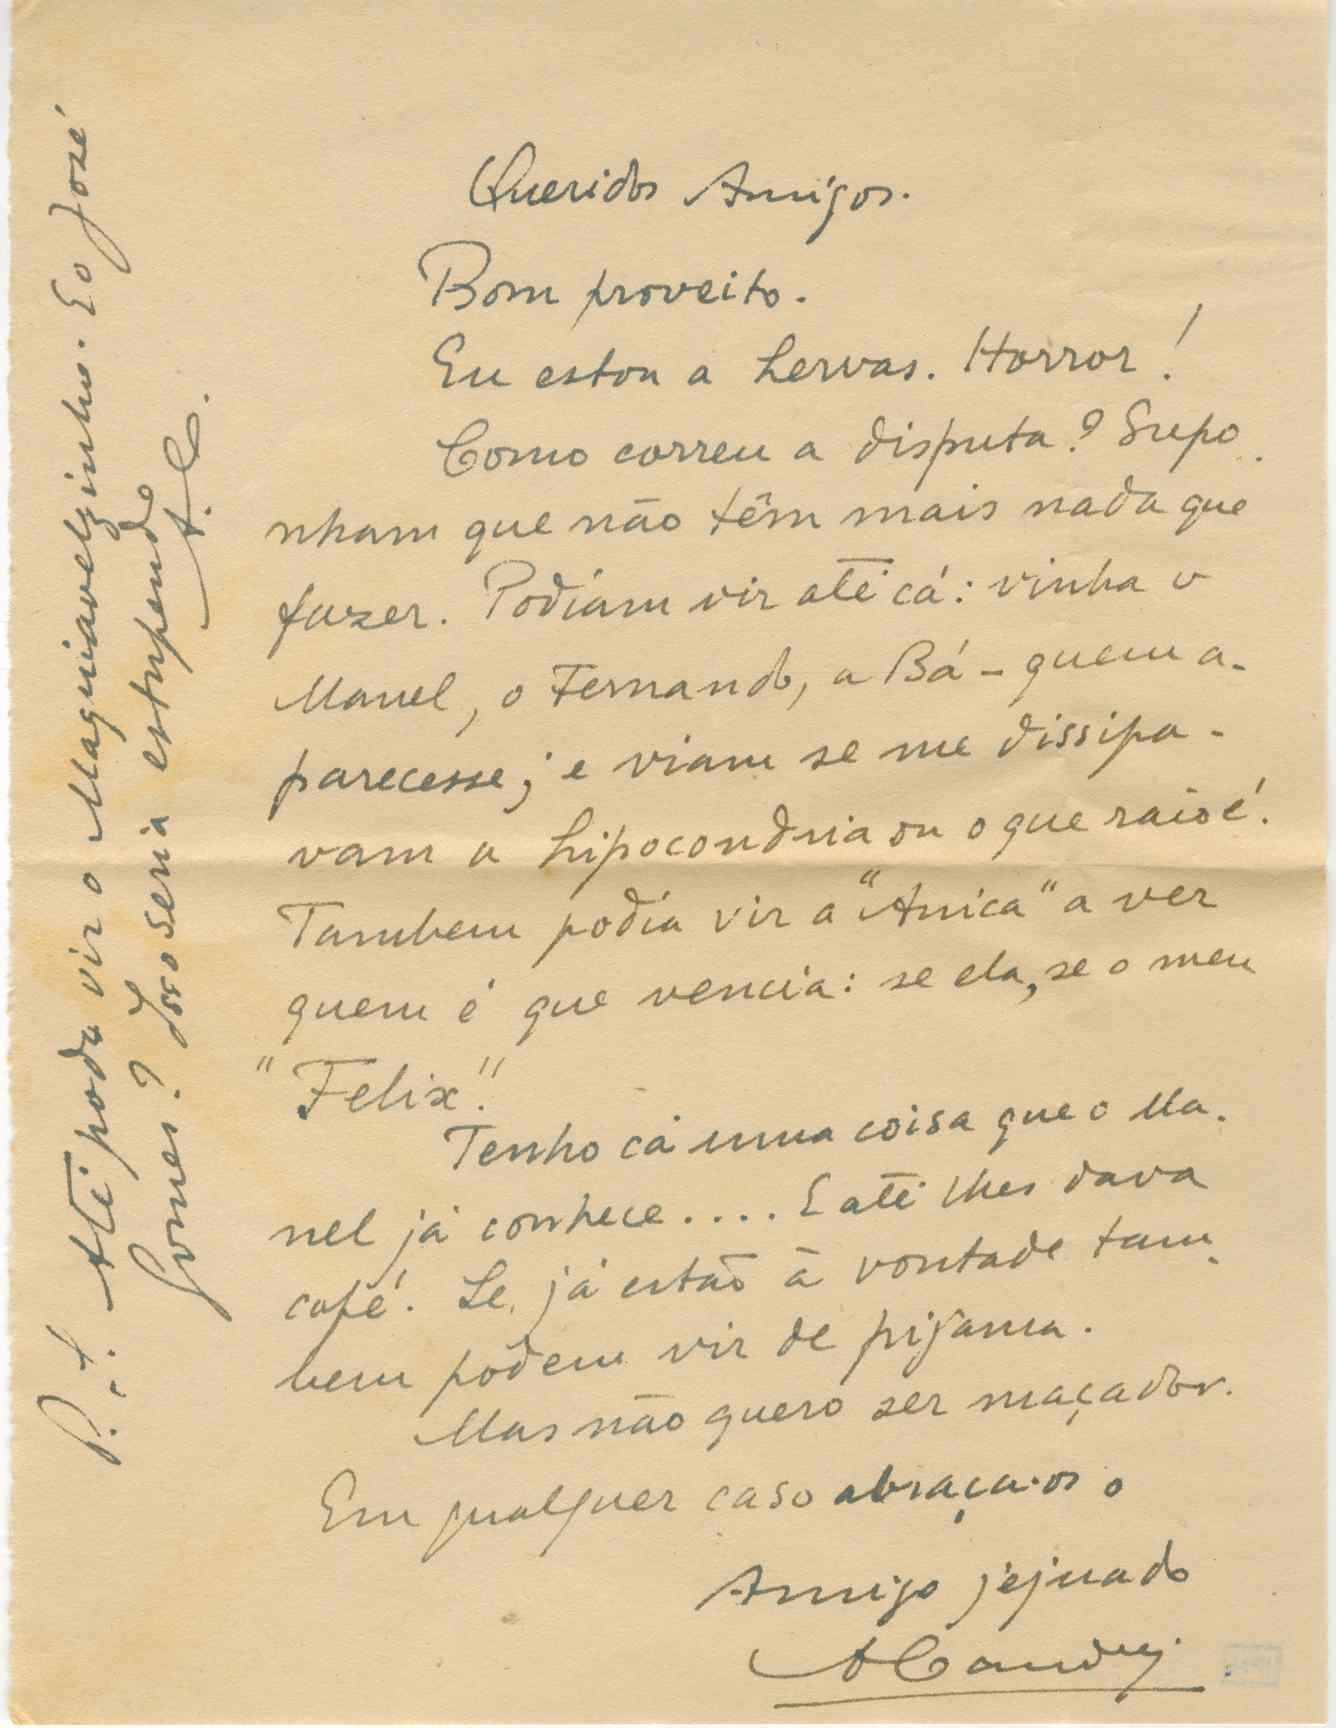 Queridos Amigos.
Bom proveito.
Eu estou a hervas. Horror!
Como correu a disputa? Supo
nham que não têm mais nada que
fazer. Podiam vir até cá: vinha o
Manel, o Fernando, a Bá - quem a-
parecesse; e viam se me dissipa-
vam a hipocondria ou o que raio é.
Tambem podia vir a "Anica" a ver
quem é que vencia: se ela, se o meu
"Felix".
Tenho cá uma coisa que o Ma-
nel já conhece.... E até lhes dava
café. Se já estão à vontade tam-
bem podem vir de pijama.
Mas não quero ser maçador.
Em qualquer caso abraça-os o
Amigo jejuado
P.S. Até podia vir o Maquiavelzinho. E o José
Gomes? Isso seria estupendo
A.C.